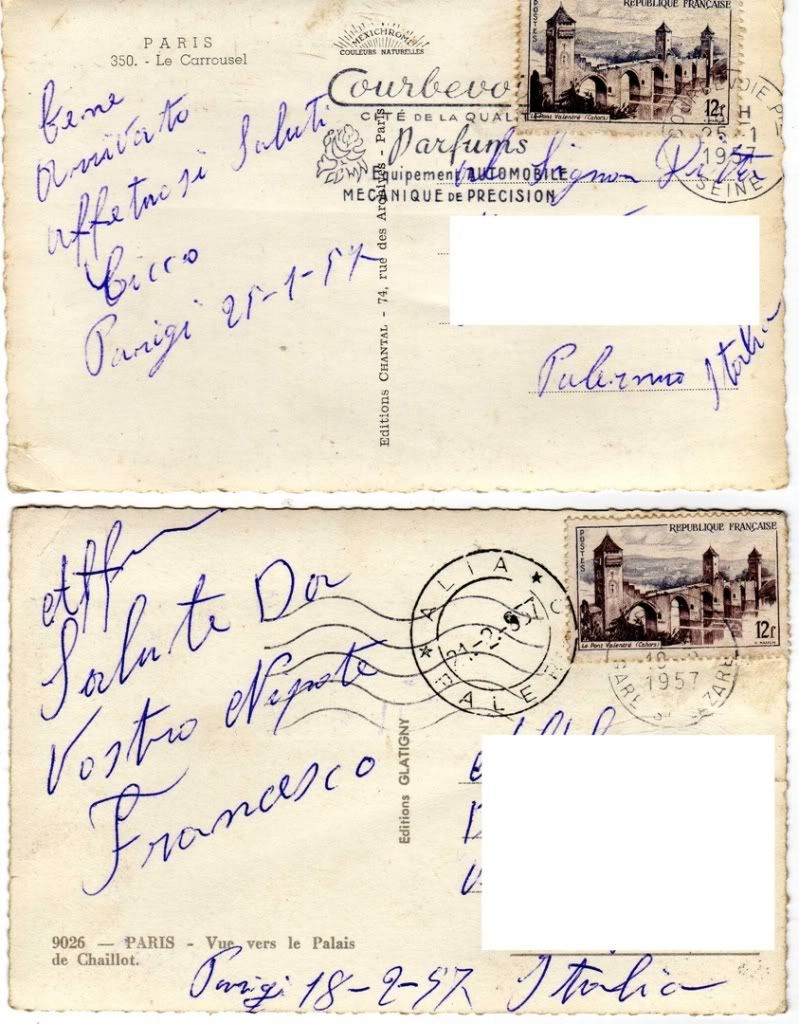 PARIS
350. - Le Carrousel
MEXICHROME
COULEURS NATURELLES
bene
arrivato
affetuosi Saluti
Cicco
Parigi 25-1-57
Editions CHANTAL - 74, rue des Archives - Paris
Courbevoie
CITÉ DE LA QUALITÉ
Parfums
Equipement AUTOMOBILE
MECANIQUE DE PRECISION
POSTES
REPUBLIQUE FRANÇAISE
Le Pont Valentré (Cahors)
12f
25-1
1957
SEINE
Signor
Palermo Italia
Saluti Da
Vostro Nipote
Francesco
Editions GLATIGNY
ALIA
21-2-957
PALER
POSTES
REPUBLIQUE FRANÇAISE
Le Pont Valentré (Cahors)
12f
1957
9026 — PARIS - Vue vers le Palais
de Chaillot.
Parigi 18-2-57 Italia